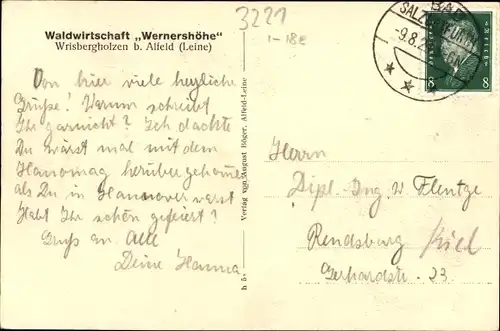 Waldwirtschaft „Wernershöhe"
Wrisbergholzen b. Alfeld (Leine)
3221
1-18e
BAD
SALZ
-9.8.2
8 8
Von hier viele herzliche
Grüße! Warum schreibt
Ihr garnicht? Ich dachte
Du wärst mal mit dem
Hanomag herübergekomme
als Du in Hannover warst
Habt Ihr schön gefeiert?
Gruß an Alle
Deine Hanna
Verlag von August Böger, Alfeld-Leine
Herrn
Dipl. Ing. W Flentge
Rendsburg Kiel
Gerhardstr. 23